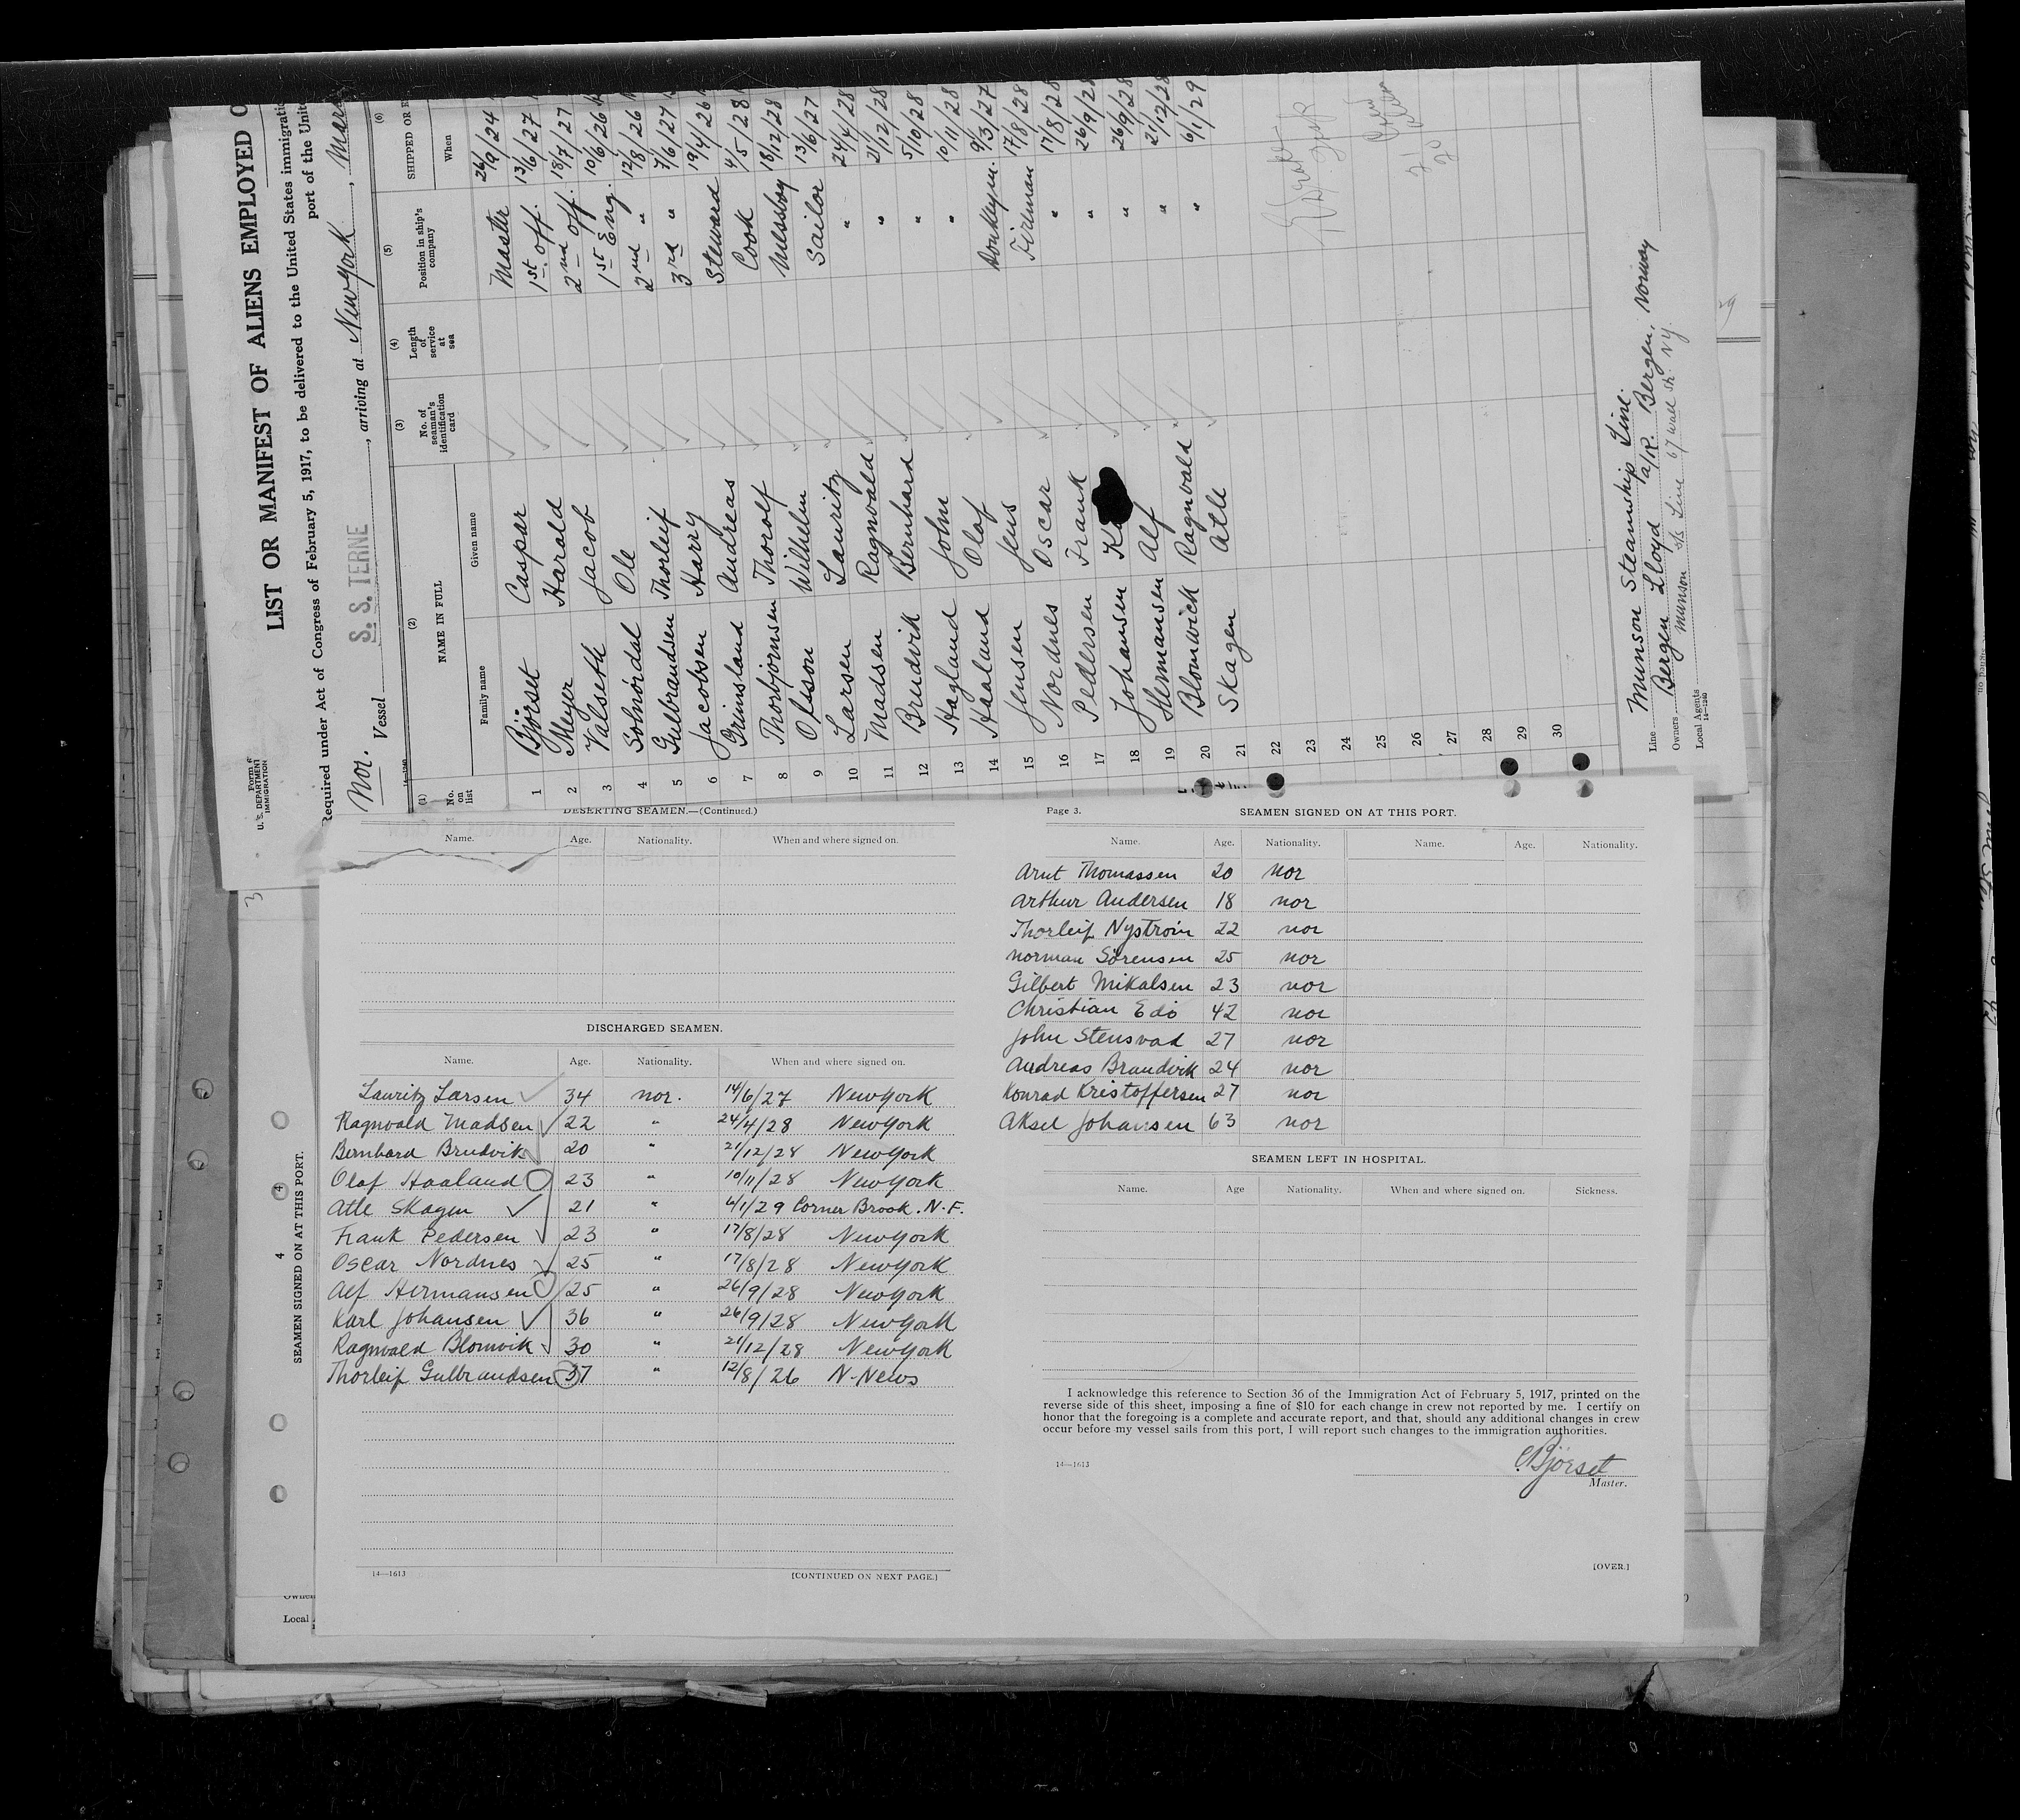 Form 6
U. S. DEPARTMENT
IMMIGRATION
LIST OR MANIFEST OF ALIENS EMPLOYED O
Required under Act of Congress of February 5, 1917, to be delivered to the United States immigratio
port of the Unite
Nor. Vessel S. S. TERNE, arriving at New York, March
14-1240
(1) (2) (3) (4) (5) (6)
No. on list NAME IN FULL No. of seaman's identification card Length of service at sea Position in ship's company SHIPPED OR E
Family name Given name When
1 Bjørset Caspar Master 26/9/24
2 Meyer Harald 1st off. 13/6/27
3 Valseth Jacob 2nd off. 18/7/27
4 Solnördal Ole 1st Eng. 10/6/26
5 Gulbrandsen Thorleif 2nd " 12/8/26
6 Jacobsen Harry 3rd " 7/6/27
7 Grimsland Andreas Steward 19/4/26
8 Thorbjornsen Thorolf Cook 4/5/28
9 Olsson Wilhelm Messboy 18/12/28
10 Larsen Lauritz Sailor 13/6/27
11 Madssen Ragnvald " 24/4/28
12 Brudvik Bernhard " 21/12/28
13 Hagland John " 5/10/28
14 Haaland Olaf " 10/11/28
15 Jensen Jens Donkeym. 9/3/27
16 Nordnes Oscar Fireman 17/8/28
17 Pedersen Frank " 17/8/28
18 Johansen Ka " 26/9/28
19 Hermansen Alf " 26/9/28
20 Blomwick Ragnvald " 21/12/28
21 Skagen Atle " 6/1/29
22
23
24
25
26
27
28
29
30
21
20
Line Munson Steamship Line
Owners Bergen Lloyd a/R. Bergen, Norway
Local Agents Munson SS Line 67 Wall St. NY.
14-1240
DESERTING SEAMEN.—(Continued.)
Name. Age. Nationality. When and where signed on.
DISCHARGED SEAMEN.
Name. Age. Nationality. When and where signed on.
Lauritz Larsen 34 nor. 14/6/27 New York
Ragnvald Madsen 22 " 24/4/28 New York
Bernhard Brudvik 20 " 21/12/28 New York
Olaf Haaland 23 " 10/11/28 New York
Atle Skagen 21 " 6/1/29 Corner Brook. N.F.
Frank Pedersen 23 " 17/8/28 New York
Oscar Nordnes 25 " 17/8/28 New York
Alf Hermansen 25 " 26/9/28 New York
Karl Johansen 36 " 26/9/28 New York
Ragnvald Blomvik 30 " 21/12/28 New York
Thorleif Gulbrandsen 37 " 12/8/26 N-News
14—1613
[CONTINUED ON NEXT PAGE.]
Page 3.
SEAMEN SIGNED ON AT THIS PORT.
Name. Age. Nationality. Name. Age. Nationality.
Arnt Thomassen 20 nor
Arthur Andersen 18 nor
Thorleif Nystrom 22 nor
Norman Sörensen 25 nor
Gilbert Mikalsen 23 nor
Christian Edö 42 nor
John Stensvad 27 nor
Andreas Brandvik 24 nor
Konrad Kristoffersen 27 nor
Aksel Johansen 63 nor
SEAMEN LEFT IN HOSPITAL.
Name. Age Nationality. When and where signed on. Sickness.
I acknowledge this reference to Section 36 of the Immigration Act of February 5, 1917, printed on the
reverse side of this sheet, imposing a fine of $10 for each change in crew not reported by me. I certify on
honor that the foregoing is a complete and accurate report, and that, should any additional changes in crew
occur before my vessel sails from this port, I will report such changes to the immigration authorities.
14—1613
C Bjørset
Master.
[OVER.]
3
4
4
SEAMEN SIGNED ON AT THIS PORT.
Owners
Local